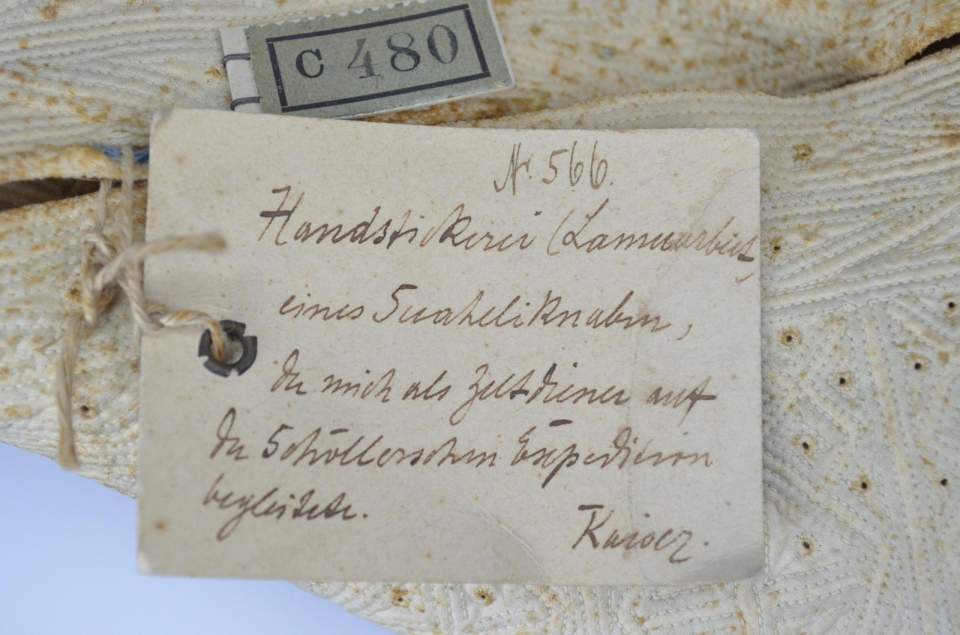 C 480
Nr. 566.
Handstickerei (Lamuarbeit,
eines Suaheliknaben,
der mich als Zeltdiener auf
der Schöllerschen Expedition
begleitete.
Kaiser.